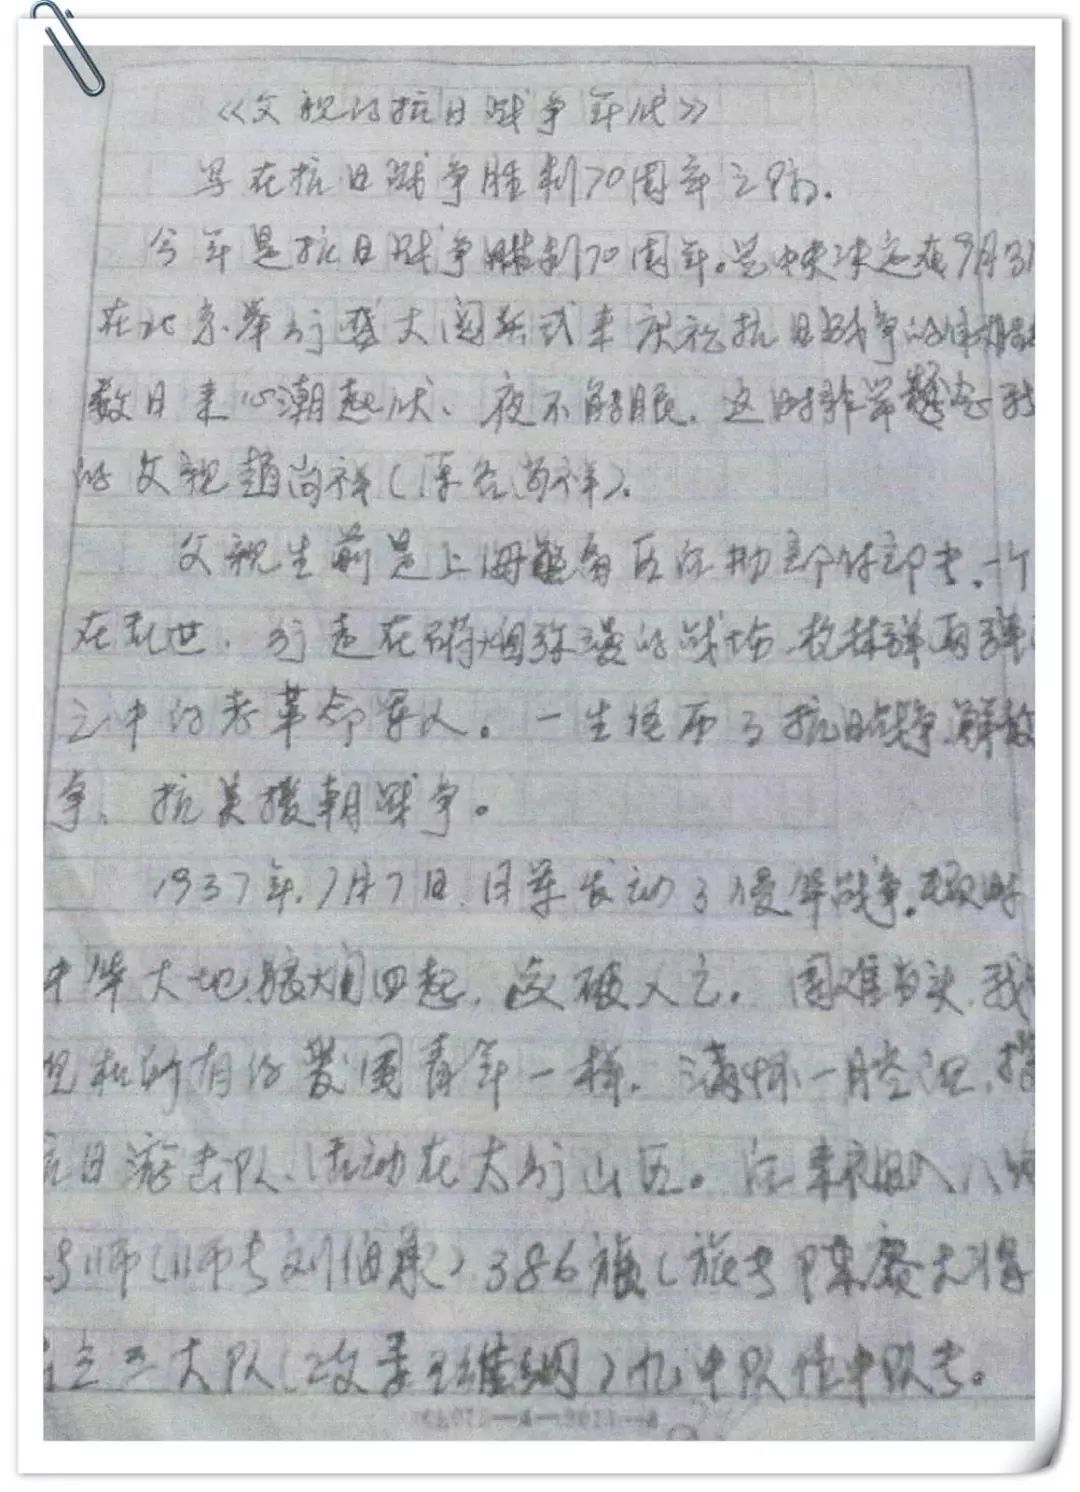 《父親的抗日战争年代》
写在抗日战争胜利70周年之际.
今年是抗日战争胜利70周年。党中央决定在9月3
在北京举行盛大阅兵式来庆祝抗日战争的伟
数日来心潮起伏、夜不能眠.这时非常想念我
的父親趙尚祥(原名尚祥).
父親生前是上海警备区后勤部付部长.一个
在乱世.行走在硝烟弥漫的战场.枪林弹雨
之中的老革命军人。一生经历了抗日战争.解放
争、抗美援朝战争。
1937年.7月7日.日军发动了侵华战争。
中华大地.狼烟四起.家破人亡。国难当头.我
和所有的爱国青年一样.满怀一腔
抗日游击队.活动在太行山区。后来
师(师长刘伯承)386旅(旅长陈赓大将
三大队(政委王维纲)九中队任中队长。